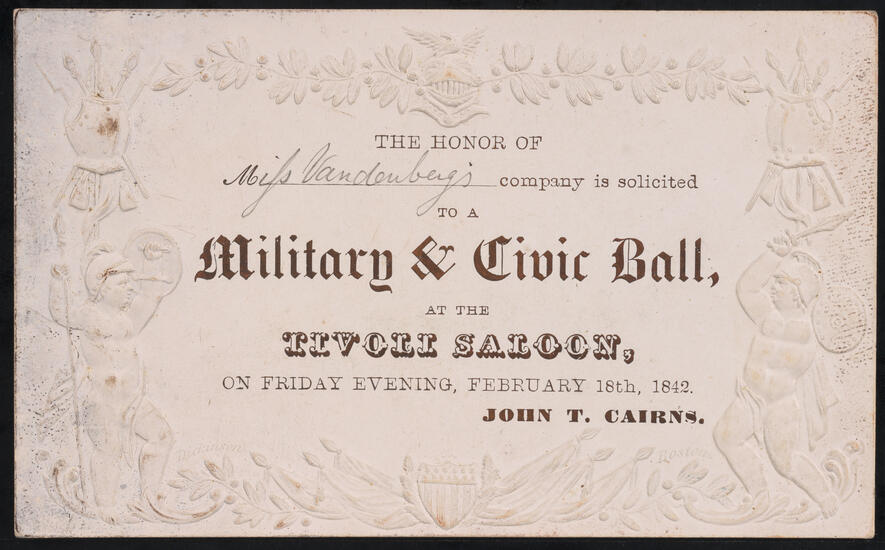 THE HONOR OF
Miss Vandenberg's company is solicited
TO A
Military & Civic Ball,
AT THE
TIVOLI SALOON,
ON FRIDAY EVENING, FEBRUARY 18th, 1842.
JOHN T. CAIRNS.
Dickinson Boston